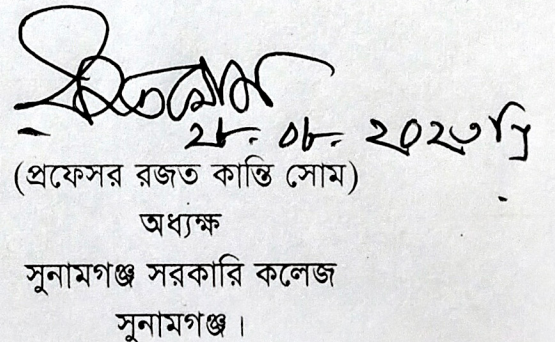 রজত সোম
২৮.০৮.২০২৩ খ্রি
(প্রফেসর রজত কান্তি সোম)
অধ্যক্ষ
সুনামগঞ্জ সরকারি কলেজ
সুনামগঞ্জ।